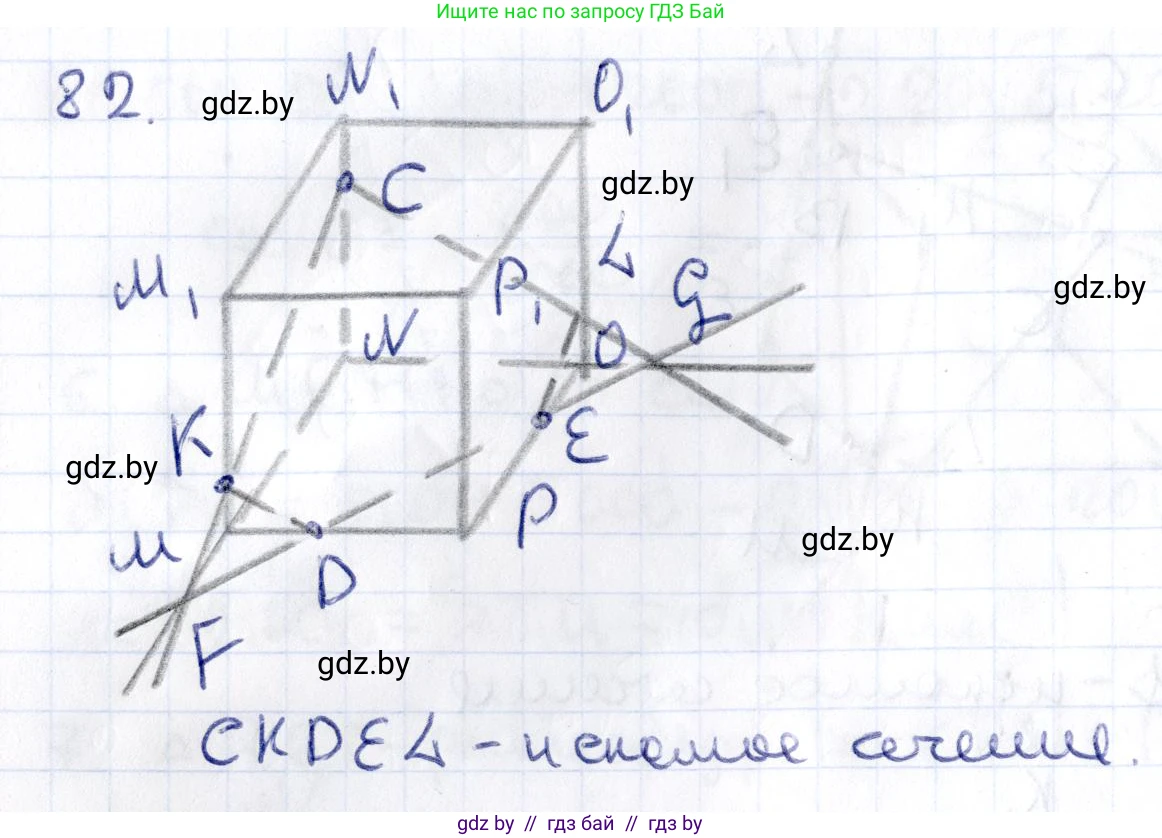 Ищите нас по запросу ГДЗ Бай
82.
gdz.by
N₁
O₁
C
gdz.by
L
M₁
P₁
G
gdz.by
N
O
K
gdz.by
E
M
D
P
gdz.by
F
gdz.by
CKDEL - искомое сечение.
gdz.by // гдз бай // gdz.by